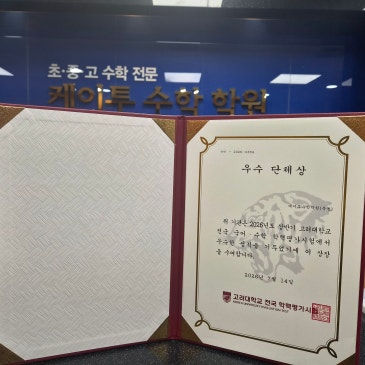 초·중·고 수학 전문
케이투 수학 학원
우수 단체상
위 기관은 2026년도 상반기 고려대학교
전국 국어·수학 학력평가시험에서
우수한 성적을 거두었기에 이 상장
을 수여합니다.
2026년 3월 14일
고려대학교 전국 학력평가시험